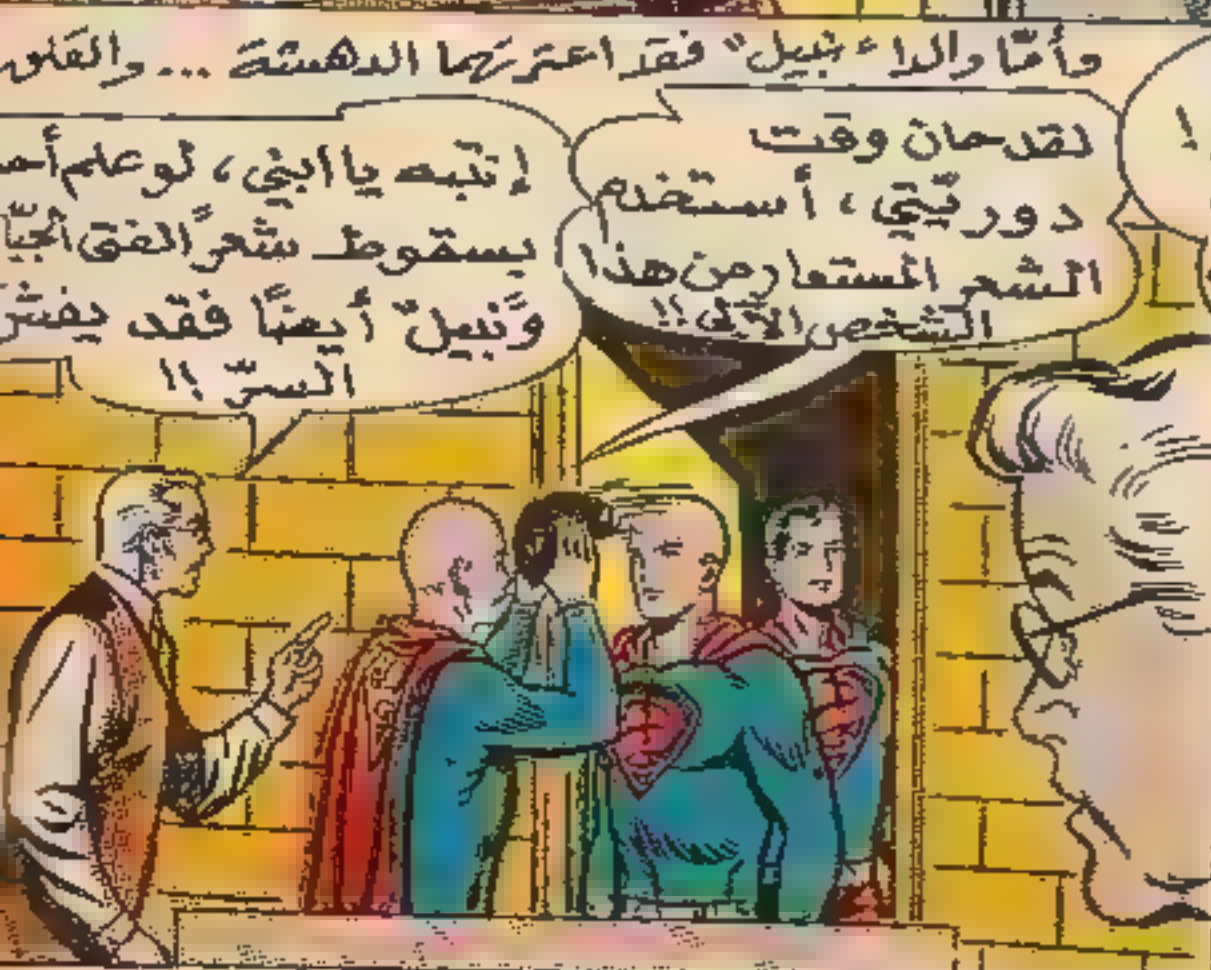 وأمّا والدا "نبيل" فقد اعترتهما الدهشة ... والقلق
!
لقد حان وقت
دور نيّتي، أستخدم
الشعر المستعار من هذا
الشخص الآلي !!
إنتبه يا ابني، لو علم
بسقوط شعر الفتى
و"نبيل" أيضًا فقد
السرّ !!